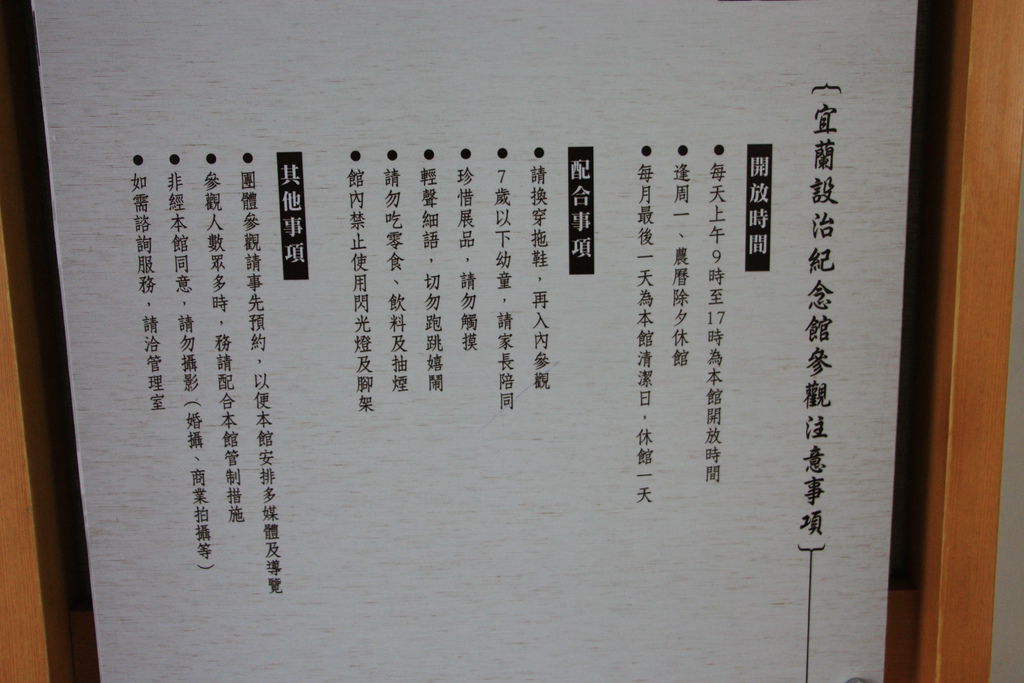 {宜蘭設治紀念館參觀注意事項}
開放時間
●每天上午9時至17時為本館開放時間
●逢周一、農曆除夕休館
●每月最後一天為本館清潔日，休館一天
配合事項
●請換穿拖鞋，再入內參觀
●7歲以下幼童，請家長陪同
●珍惜展品，請勿觸摸
●輕聲細語，切勿跑跳嬉鬧
●請勿吃零食、飲料及抽煙
●館內禁止使用閃光燈及腳架
其他事項
●團體參觀請事先預約，以便本館安排多媒體及導覽
●參觀人數眾多時，務請配合本館管制措施
●非經本館同意，請勿攝影（婚攝、商業拍攝等）
●如需諮詢服務，請洽管理室